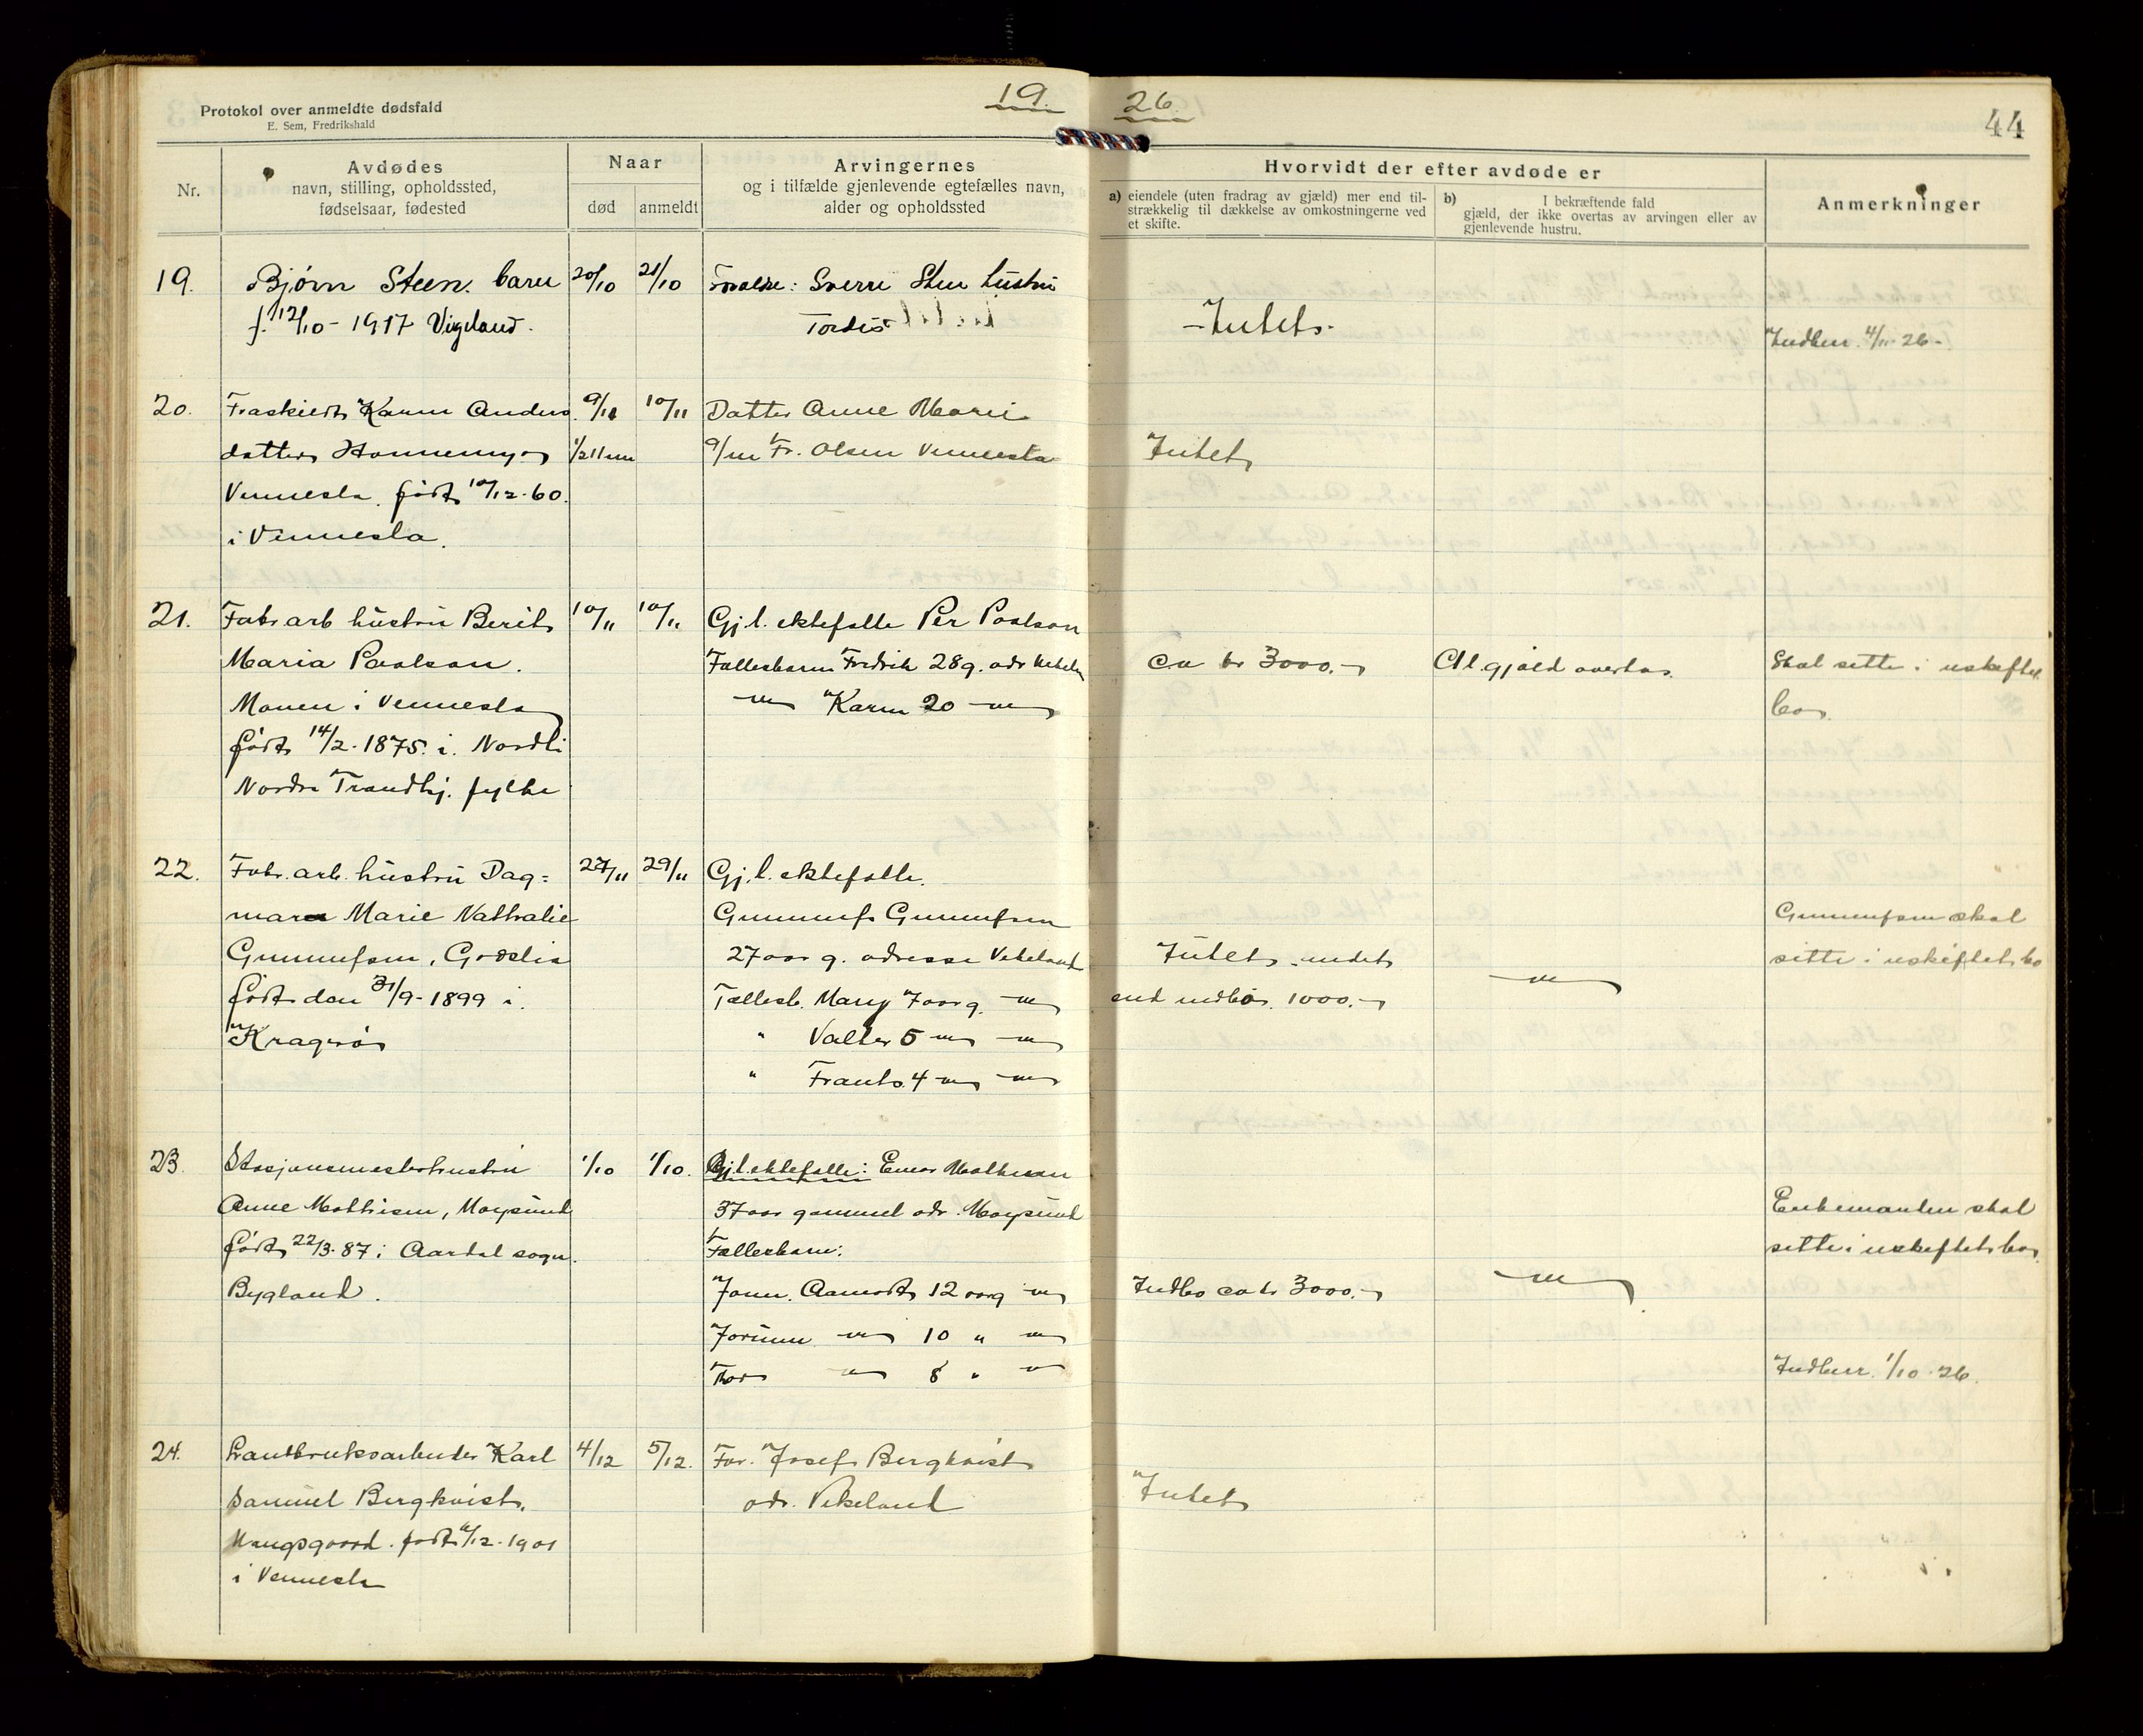 Protokol over anmeldte dødsfald
E. Sem, Fredrikshald
19. 26.
44
Nr.
Avdødes
navn, stilling, opholdssted,
fødselsaar, fødested
Naar
død anmeldt
Arvingernes
og i tilfælde gjenlevende egtefælles navn,
alder og opholdssted
Hvorvidt der efter avdøde er
a) eiendele (uten fradrag av gjæld) mer end til-
strækkelig til dækkelse av omkostningerne ved
et skifte.
b) I bekræftende fald
gjæld, der ikke overtas av arvingen eller av
gjenlevende hustru.
Anmerkninger
19. Bjørn Steen. barn 20/10 21/10 Foraldre: Sverre Sten hustru
f. 12/10 - 1917 Vigeland. Tordis
-Intet.-
Indberr. 4/11-26-
20. Fraskiedt Karen Anders 9/11 10/11 Datter Anne Marie
datter Honnemyr 1/2 11 g/m Fr. Olsen Vennesla
Intet
Vennesla. født 10/12-60.
i Vennesla.
21. Fabr.arb hustru Berit 10/11 10/11 Gj.l. ektefalle Per Paalson
Maria Paalson. Fallesbarn Fredrik 28 g. adr Vekeland
ca kr 3000.- Al gjæld overtas. Skal sitte i uskiftet
Moen i Vennesla -"- Karen 20 -"-
bo.
født 14/2-1875. i. Nordli
Nordre Trondhj. fylke
22. Fabr. arb. hustru Dag= 27/11 29/11 Gj.l. ektefalle.
mara Marie Nathalie Gunnuf Gunnufsen
Gunnufsen skal
Gunnufsen, Graslia 27 aar g. adresse Vekeland
Intet. undet -"- sitte i uskiftet bo
født den 21/9-1899 i. Fallesb. Mary 7 aar g. -"-
end indbo. 1000.-
Kragerø " Valter 5 -"- -"-
" Frants. 4 -"- -"-
23. Stasjonsmesterhustru 1/10 1/10. Gjl. ektefalle: Einar Mathisen
Anne Mathisen, Moysund 37 aar gammel adr. Moysund
Enkemanden skal
født 22/3-87 i Aardal sogn. Fallesbarn:
sitte i uskiftet bo
Bygland. Jonn. Aamodt 12 aar g -"-
Indbo ca kr 3000.- -"-
Jorunn -"- 10 " -"-
Thor -"- 8 " -"-
Indberr. 1/10-26.
24. Lantbruksarbeider Karl 4/12 5/12. Far. Josef Bergkvist
Samuel Bergkvist. adr. Vikeland
Intet
født /12-1901
i Vennesla